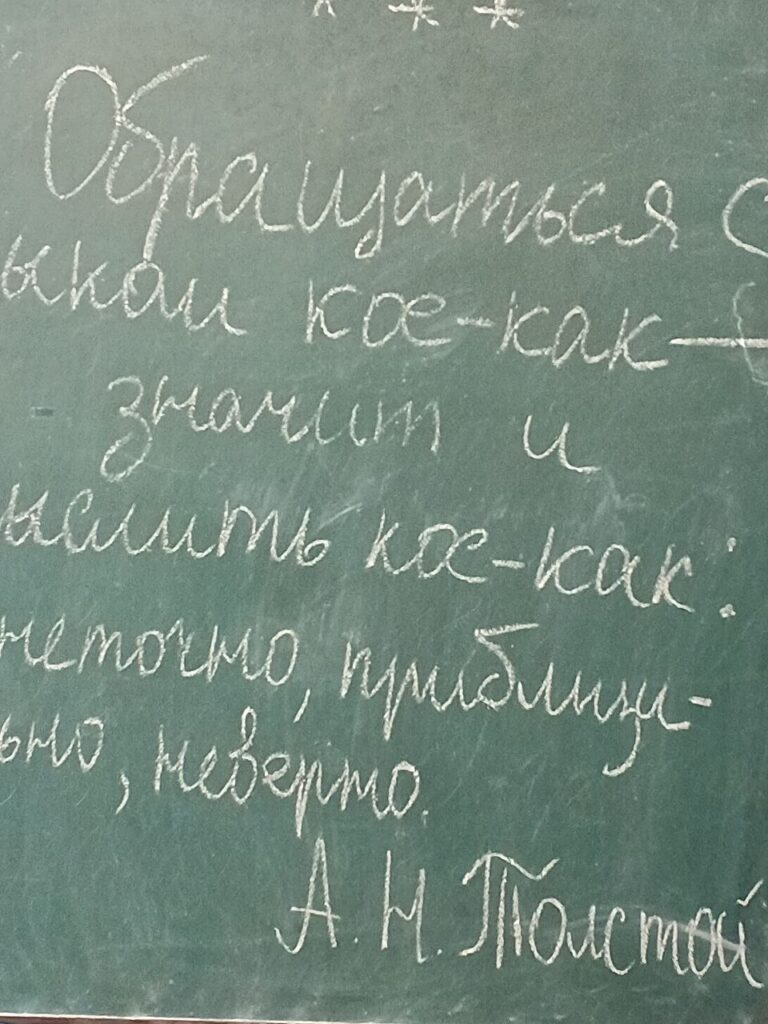 * * *
Обращаться с
ыком кое-как —
значит и
ыслить кое-как:
неточно, приблизи-
ьно, неверно.
А. Н. Толстой